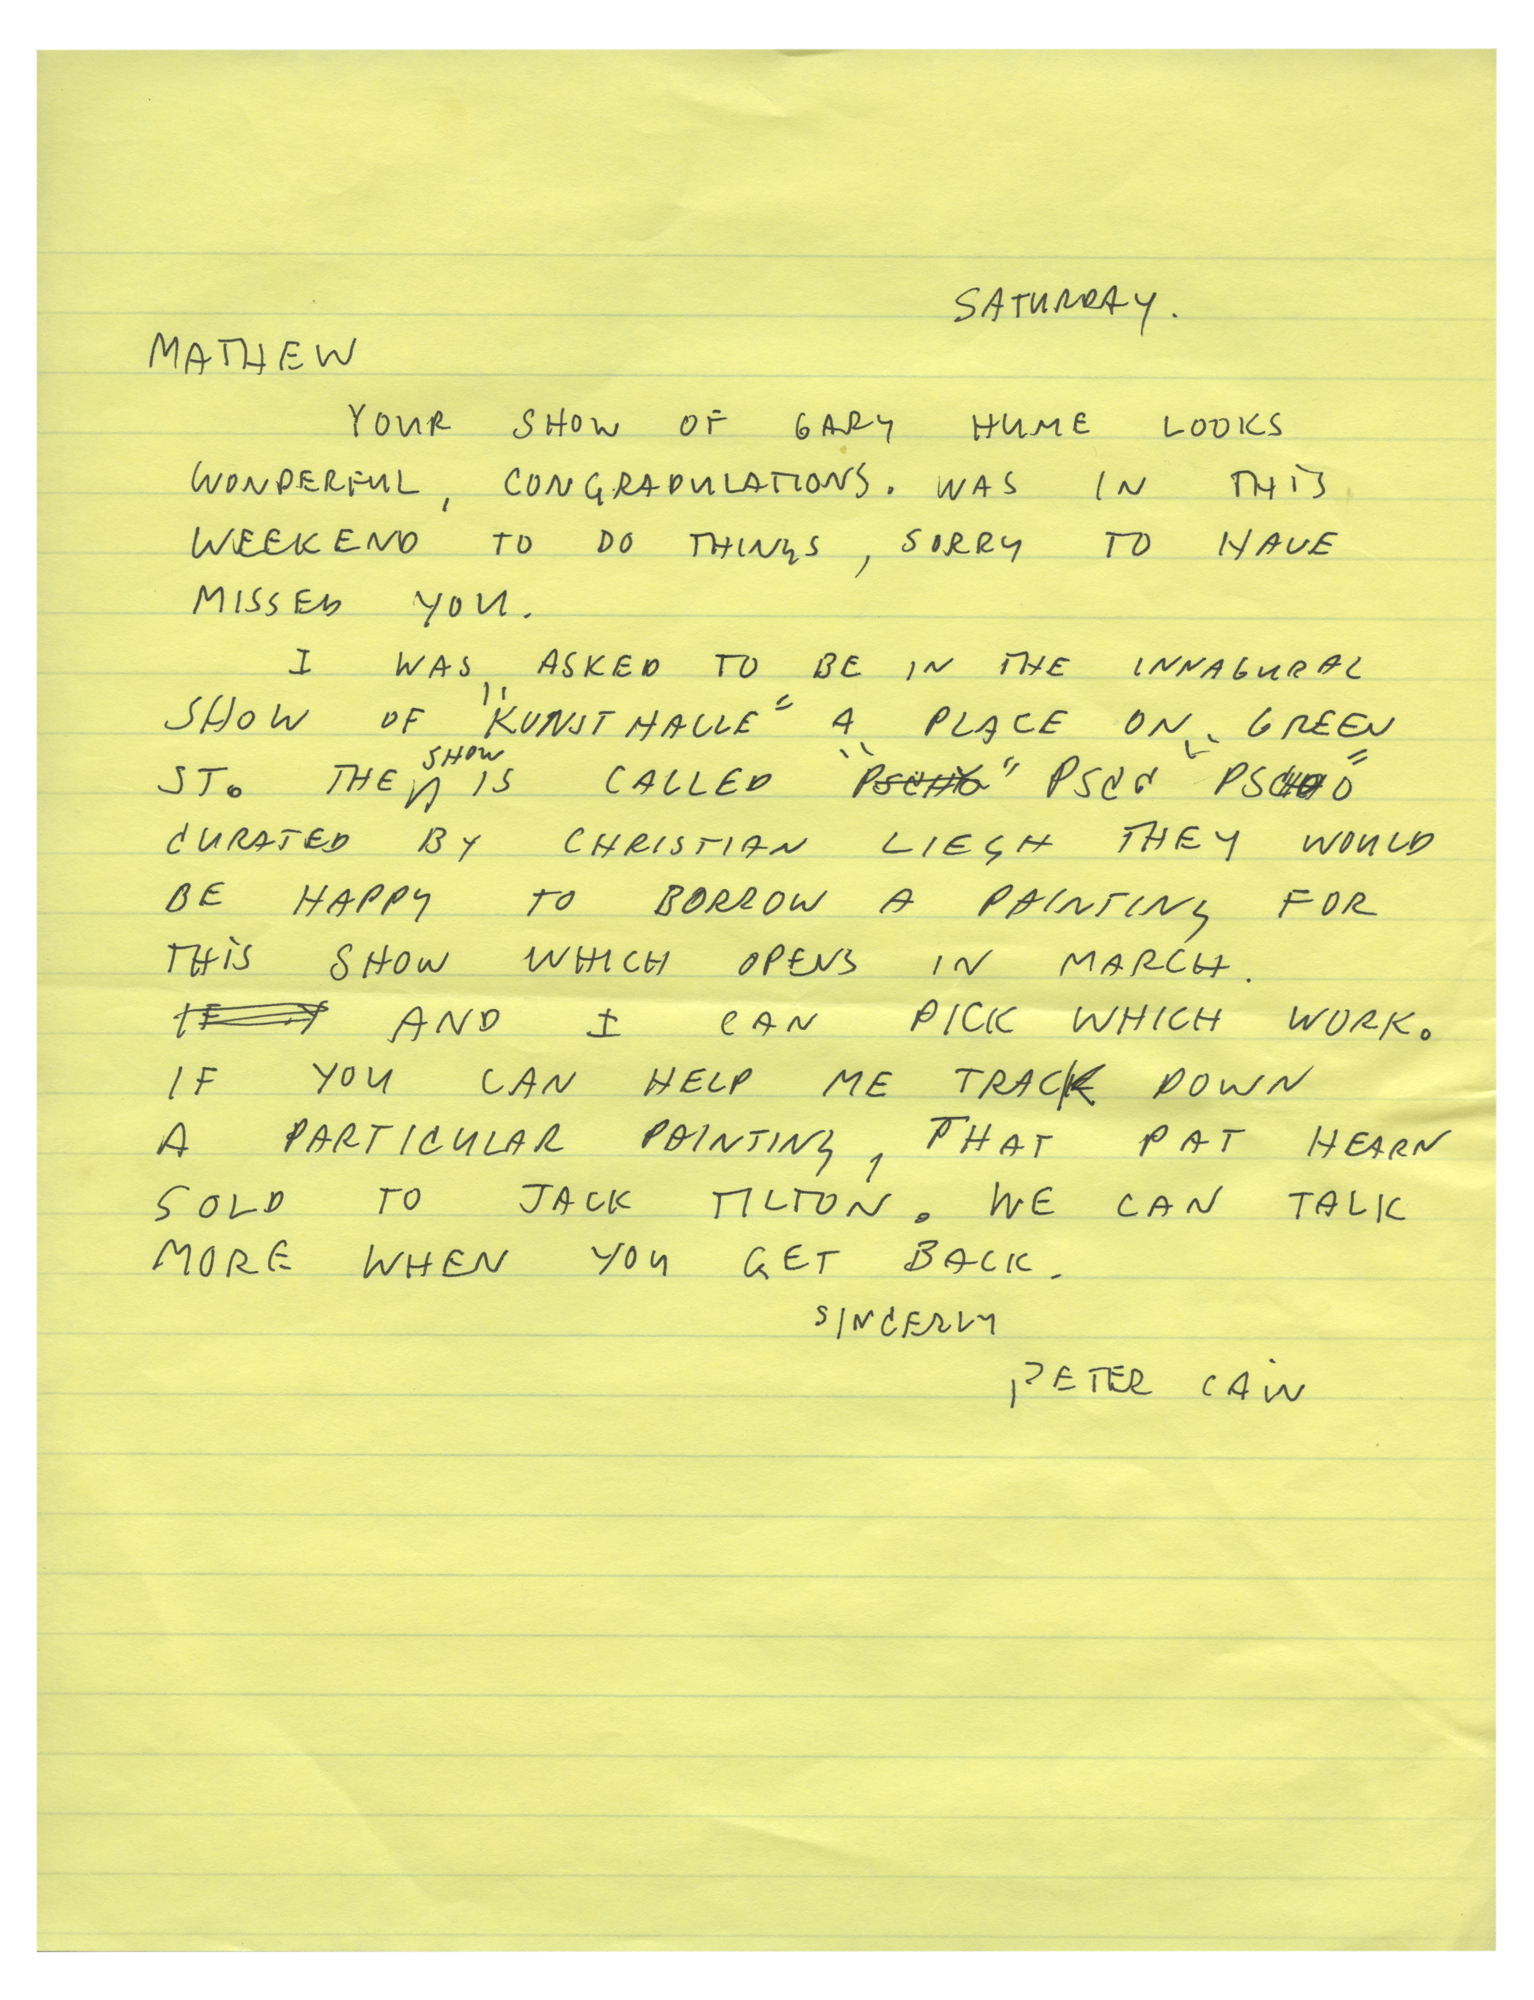 SATURDAY.
MATHEW
YOUR SHOW OF GARY HUME LOOKS
WONDERFUL, CONGRADULATIONS. WAS IN THIS
WEEKEND TO DO THINGS, SORRY TO HAVE
MISSED YOU.
I WAS ASKED TO BE IN THE INNAGURAL
SHOW OF "KUNSTHALLE" A PLACE ON GREEN
ST. THE SHOW IS CALLED "PSCHYO" PSCC "PSCHO"
CURATED BY CHRISTIAN LIEGH THEY WOULD
BE HAPPY TO BORROW A PAINTING FOR
THIS SHOW WHICH OPENS IN MARCH.
AND I CAN PICK WHICH WORK.
IF YOU CAN HELP ME TRACK DOWN
A PARTICULAR PAINTING, THAT PAT HEARN
SOLD TO JACK TILTON. WE CAN TALK
MORE WHEN YOU GET BACK.
SINCERLY
PETER CAIN